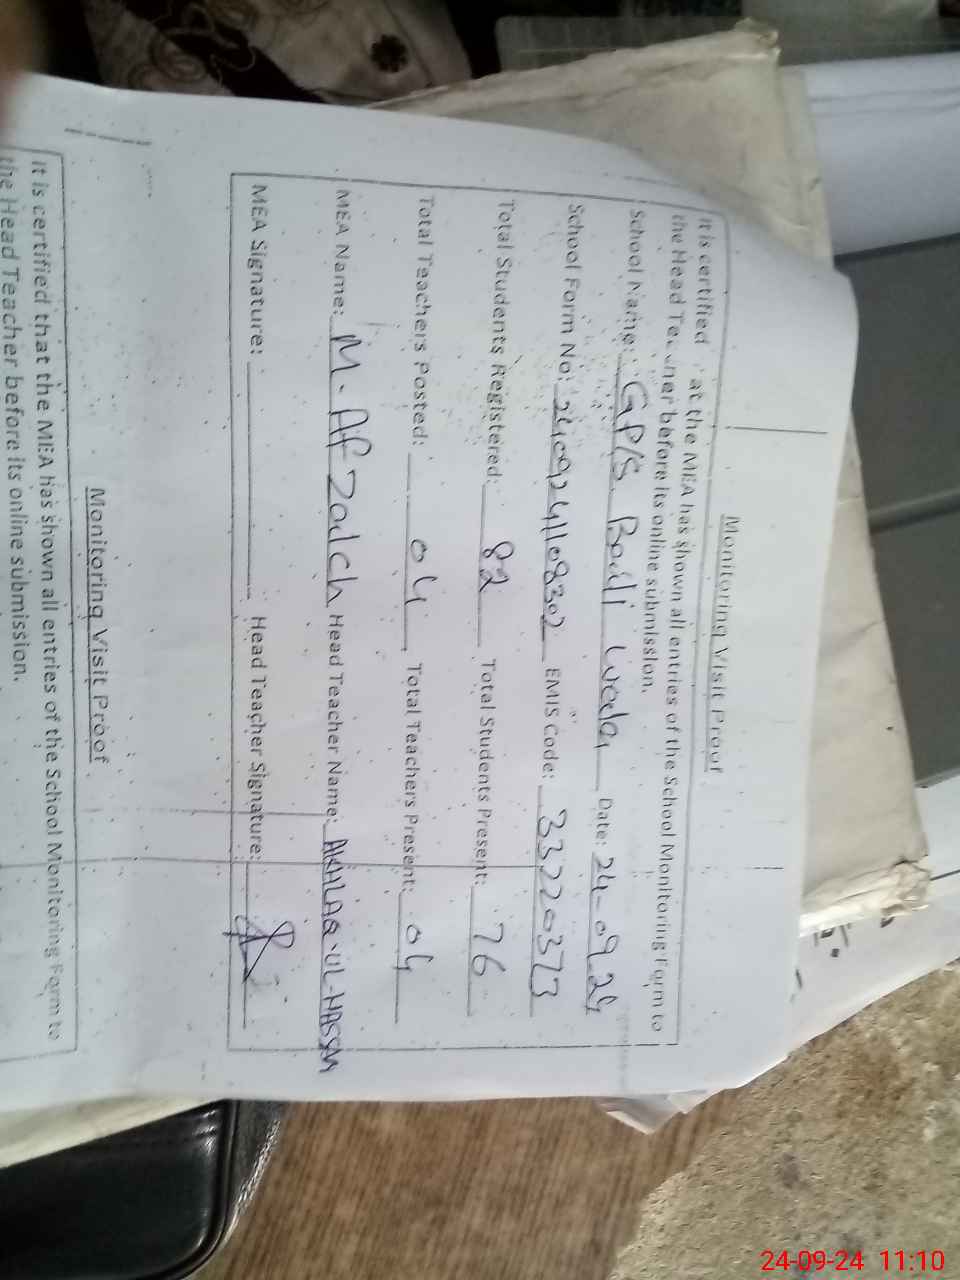 Monitoring Visit Proof
It is certified that the MEA has shown all entries of the School Monitoring Form to
the Head Teacher before its online submission.
School Name: GPS Badi Date: 24-09-24
School Form No: 2409241108302 EMIS Code: 33220373
Total Students Registered: 82 Total Students Present: 76
Total Teachers Posted: 04 Total Teachers Present: 04
MEA Name: M. Afzal Ch Head Teacher Name: AKHLAQ-UL-HASSAN
MEA Signature: Head Teacher Signature:
Monitoring Visit Proof
It is certified that the MEA has shown all entries of the School Monitoring Form to
the Head Teacher before its online submission.
24-09-24 11:10